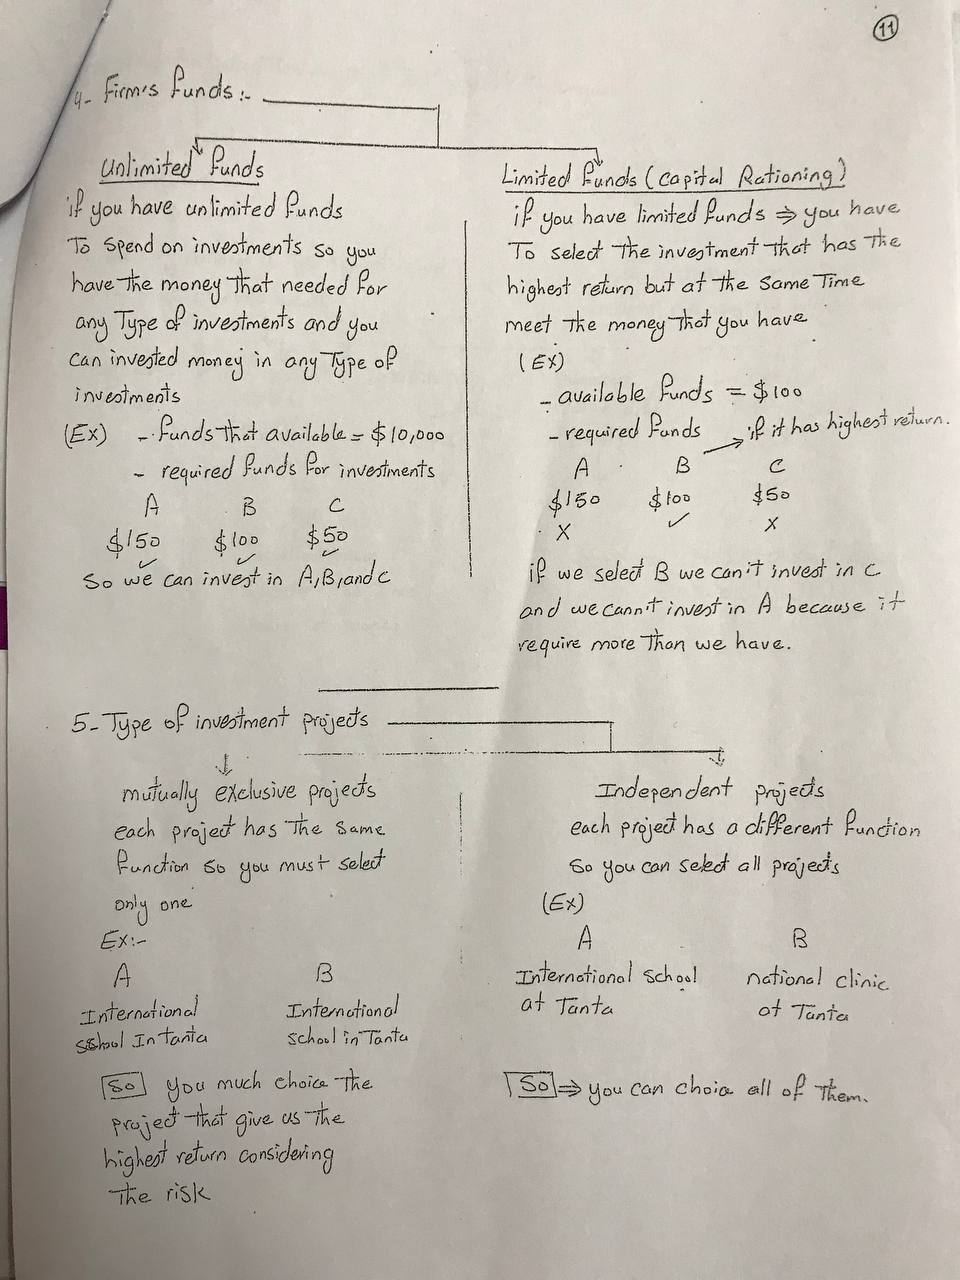 11
4- Firm's funds:-
Unlimited funds
if you have unlimited funds
To spend on investments so you
have the money that needed for
any Type of investments and you
can invested money in any Type of
investments
(Ex) - funds that available = $10,000
- required funds for investments
A B C
$150 $100 $50
✓ ✓ ✓
So we can invest in A, B, and C
Limited funds (capital Rationing)
if you have limited funds ⇒ you have
To select the investment that has the
highest return but at the same Time
meet the money that you have
(Ex)
- available funds = $100
- required funds → if it has highest return.
A B C
$150 $100 $50
X ✓ X
if we select B we can't invest in C
and we cann't invest in A because it
require more than we have.
5- Type of investment projects
mutually exclusive projects
each project has the same
function so you must select
only one
Ex:-
A B
International International
school In tanta school in Tanta
So you much choice the
project that give us the
highest return considering
the risk
Independent projects
each project has a different function
so you can select all projects
(Ex)
A B
International school national clinic
at Tanta at Tanta
So ⇒ you can choice all of them.